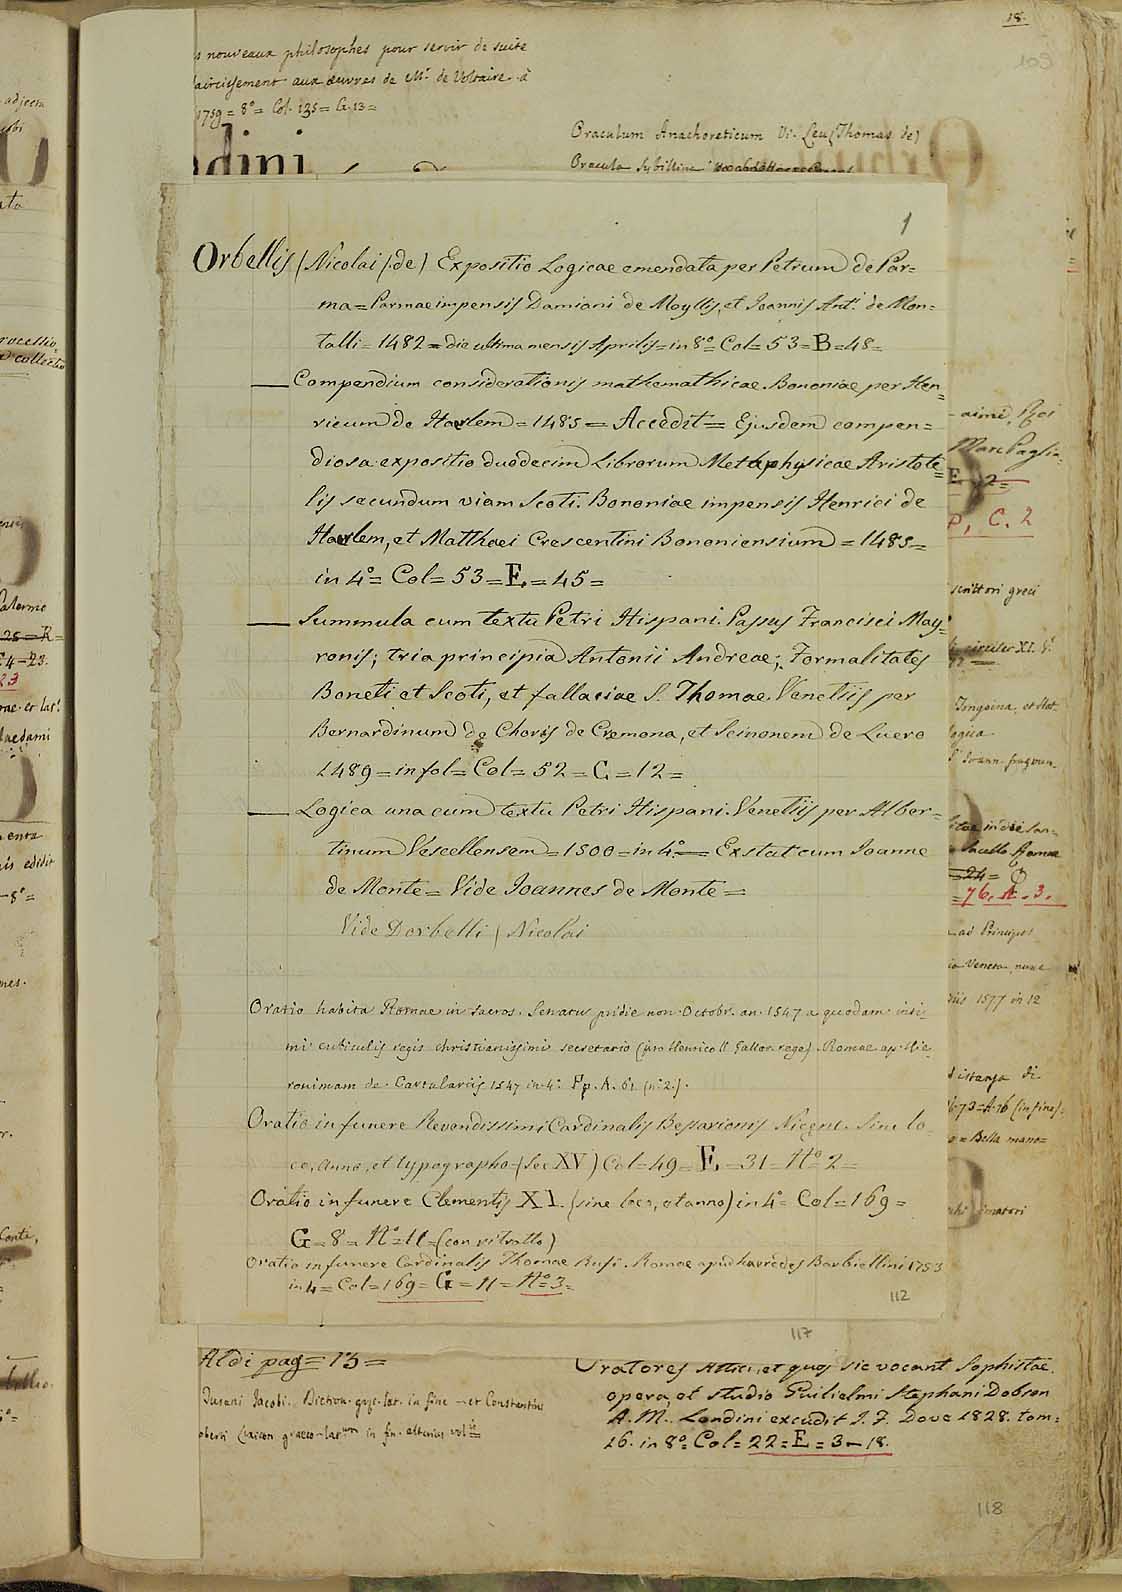 18.
103
s nouveaux philosophes pour servir de suite
aircissement aux œuvres de Mr. de Voltaire à
1759 = 8° = Col. 135 = G. 13 =
dini
Oraculum Anachoreticum Vi. Leu (Thomas de)
Oracula Sybillina
1
Orbellis (Nicolai / de) Expositio Logicae emendata per Petrum de Par=
ma = Parmae impensis Damiani de Moyllis, et Joannis Ant. de Mon=
talli = 1482 = die ultima mensis Aprilis = in 8° = Col = 53 = B = 48 =
— Compendium considerationis mathemathicae Bononiae per Hen=
ricum de Harlem = 1485 = Accedit = Ejusdem compen=
diosa expositio duodecim Librorum Metaphysicae Aristote=
lis secundum viam Scoti. Bononiae impensis Henrici de
Harlem, et Matthaei Crescentini Bononiensium = 1485 =
in 4° = Col = 53 = E. = 45 =
— Summula cum textu Petri Hispani. Passus Francisci May=
ronis; tria principia Antonii Andreae; Formalitates
Boneti et Scoti, et fallaciae S. Thomae. Venetiis per
Bernardinum de Choris de Cremona, et Seinonem de Luero
1489 = in fol = Col = 52 = C = 12 =
— Logica una cum textu Petri Hispani. Venetiis per Alber=
tinum Vescellensem = 1500 = in 4° = Exstat cum Joanne
de Monte = Vide Joannes de Monte =
Vide Dorbelli / Nicolai
Oratio habita Romae in sacros. Senatus pridie non. Octobr. an. 1547 a quodam inti=
mi cubiculis regis christianissimi secretario (pro Henrico II Gallor. rege). Romae ap. Hie=
ronimam de Cartulariis 1547 in 4° Fp. A. 61 (n°. 2.).
Oratio in funere Revendissimi Cardinalis Bessarionis Nicent. Sine lo=
co, Anno, et typographo = (Sec XV) Col = 49 = E. = 31 = N° = 2 =
Oratio in funere Clementis XI. (sine loco, et anno) in 4° = Col = 169 =
G = 8 = N° = 11 = (con ritratto)
Oratio in funere Cardinalis Thomae Rufi. Romae apud haeredes Barbiellini 1753
in 4 = Col = 169 = G = 11 = N° 3 =
112
117
Aldi pag = 13 =
Tusani Jacobi. Diction. gręc. lat. in fine — et Constantini
Oratores Attici, et quos sic vocant Sophistae.
opera, et studio Guilielmi Stephani Dobson
A. M. Londini excudit J. F. Dove 1828. tom=
16. in 8° = Col = 22 = E = 3 — 18.
118
aimé, Roi
P, C. 2
scrittori greci
circiter XI. S.
= 24 =
= 76. A. 3.
ad Principes
Veneta, nunc
1577 in 12
istanza di
73 = A. 16 (in fine)
= Bella mano =
adjecta
collectio
Palermo
4 — 23.
23
edidit
Conti,